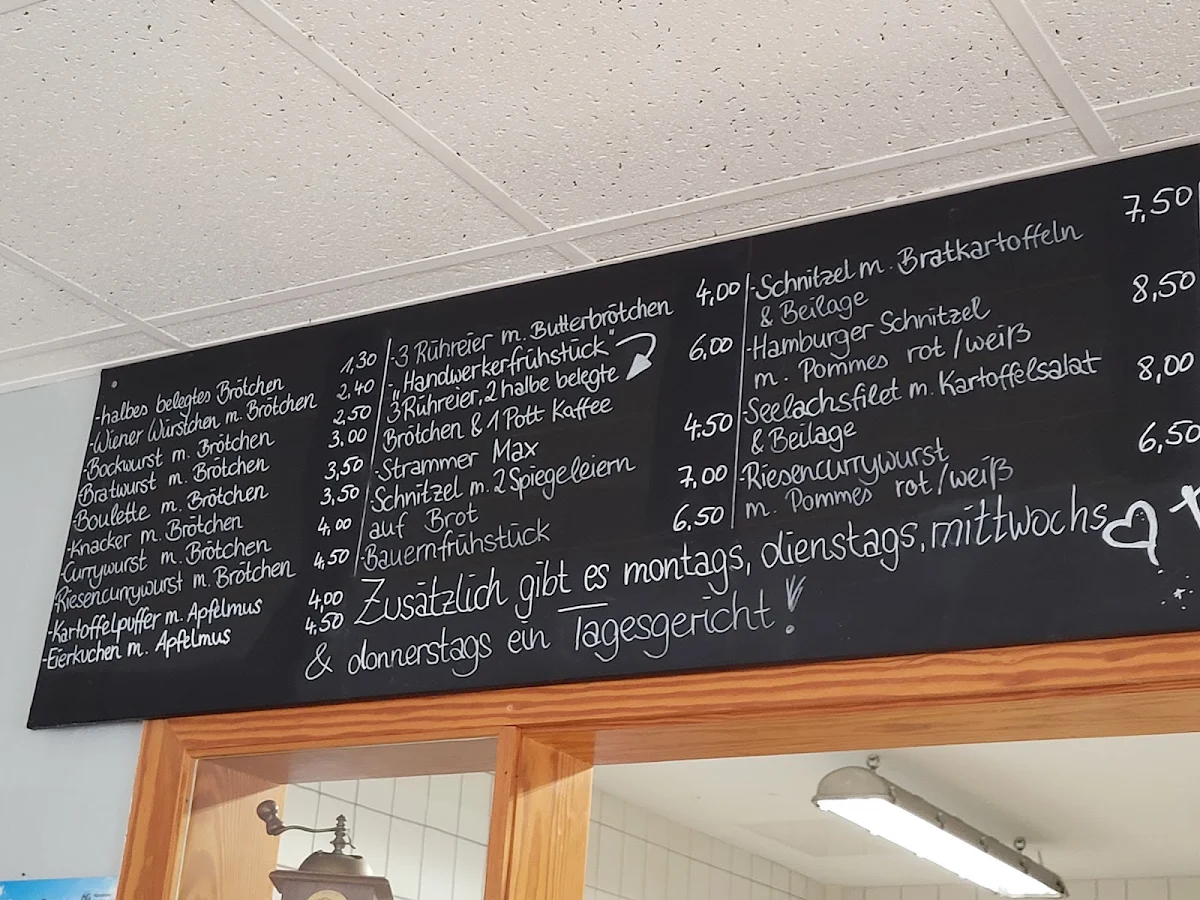 -halbes belegtes Brötchen 1,30
-Wiener Würstchen m. Brötchen 2,40
-Bockwurst m. Brötchen 2,50
-Bratwurst m. Brötchen 3,00
-Boulette m. Brötchen 3,50
-Knacker m. Brötchen 3,50
-Currywurst m. Brötchen 4,00
-Riesencurrywurst m. Brötchen 4,50
-Kartoffelpuffer m. Apfelmus 4,00
-Eierkuchen m. Apfelmus 4,50
-3 Rühreier m. Butterbrötchen 4,00
-„Handwerkerfrühstück" 6,00
3 Rühreier, 2 halbe belegte
Brötchen & 1 Pott Kaffee
-Strammer Max 4,50
-Schnitzel m. 2 Spiegeleiern 7,00
auf Brot
-Bauernfrühstück 6,50
-Schnitzel m. Bratkartoffeln 7,50
& Beilage
-Hamburger Schnitzel 8,50
m. Pommes rot/weiß
-Seelachsfilet m. Kartoffelsalat 8,00
& Beilage
-Riesencurrywurst 6,50
m. Pommes rot/weiß
Zusätzlich gibt es montags, dienstags, mittwochs
& donnerstags ein Tagesgericht!